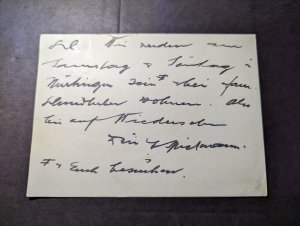 Wir werden am
Samstag & Sonntag in
Nürtingen sein & bei Fam.
wohnen. Also
bis auf Wiedersehn
Dein
& Euch besuchen.